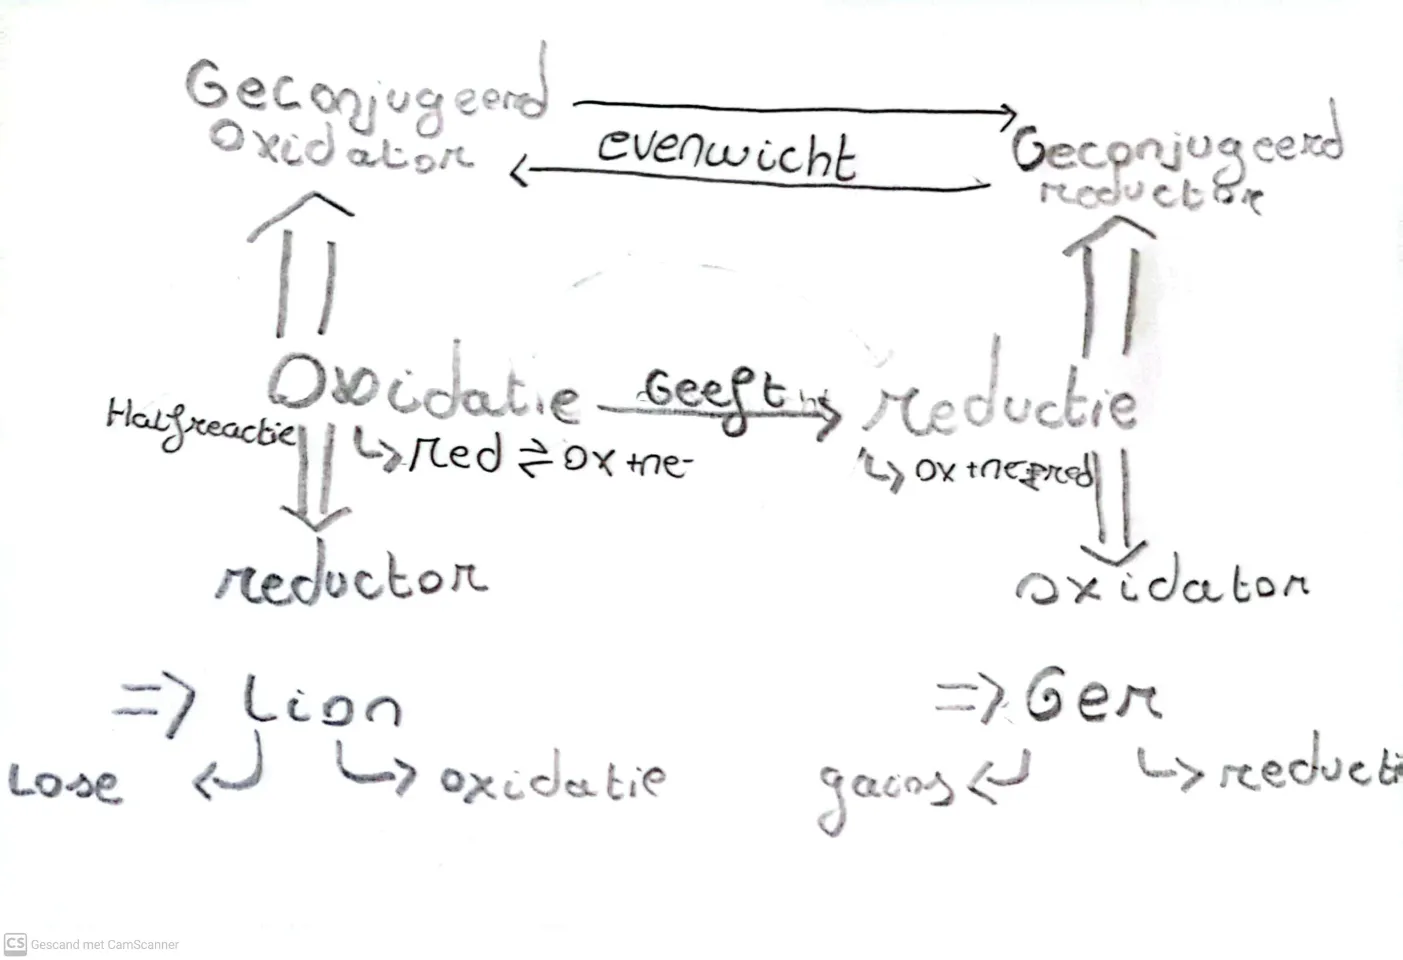 Geconjugeerd
Oxidator
evenwicht
Geconjugeerd
reductor
Oxidatie
Geeft
reductie
Halfreactie
red ⇌ ox +ne-
ox +ne⇌red
reductor
oxidator
=> Lion
=> Ger
Lose
oxidatie
gains
reducti
CS Gescand met CamScanner